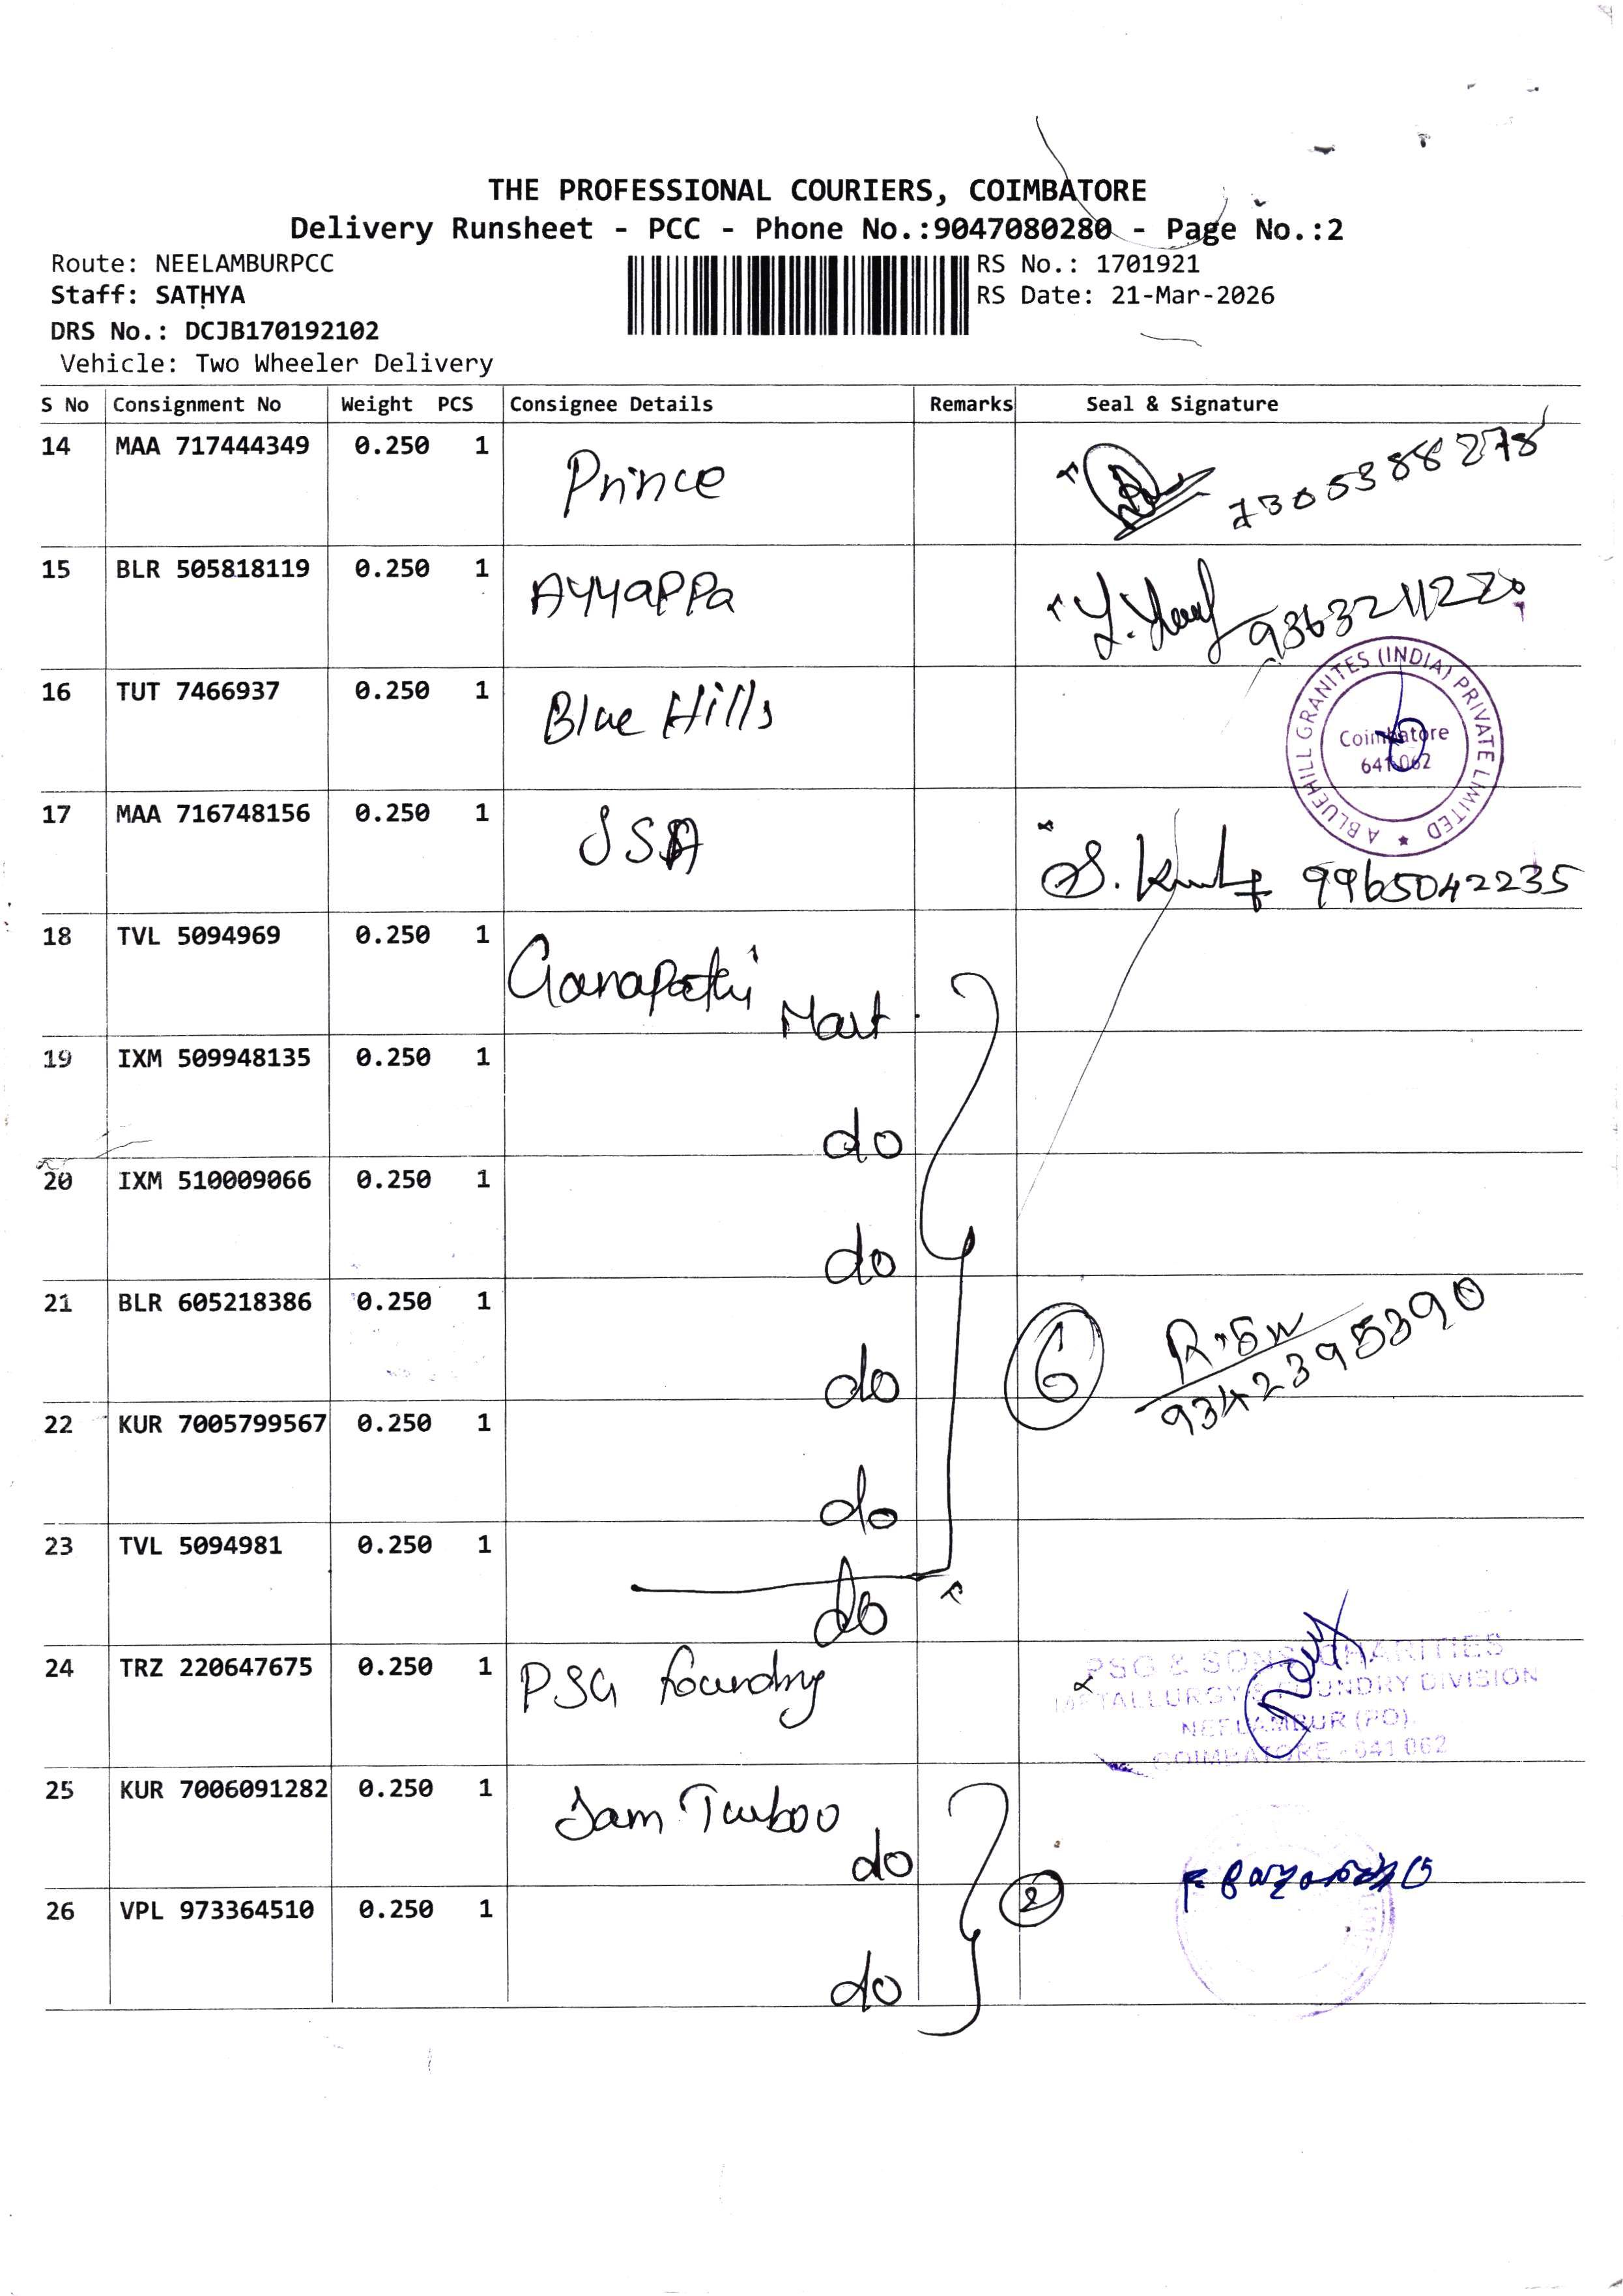 THE PROFESSIONAL COURIERS, COIMBATORE
Delivery Runsheet - PCC - Phone No.:9047080280 - Page No.:2
Route: NEELAMBURPCC
RS No.: 1701921
Staff: SATHYA
RS Date: 21-Mar-2026
DRS No.: DCJB170192102
Vehicle: Two Wheeler Delivery
S No Consignment No Weight PCS Consignee Details Remarks Seal & Signature
14 MAA 717444349 0.250 1 Prince 7305388278
15 BLR 505818119 0.250 1 Ayyappa 9363211220
16 TUT 7466937 0.250 1 Blue Hills
A BLUEHILL GRANITES (INDIA) PRIVATE LIMITED
Coimbatore
641 062
17 MAA 716748156 0.250 1 JSA 9965042235
18 TVL 5094969 0.250 1 Ganapathi Mart
19 IXM 509948135 0.250 1 do
20 IXM 510009066 0.250 1 do
21 BLR 605218386 0.250 1 do 6
9342395390
22 KUR 7005799567 0.250 1 do
23 TVL 5094981 0.250 1 do
24 TRZ 220647675 0.250 1 PSG Foundry
PSG & SONS CHARITIES
METALLURGY & FOUNDRY DIVISION
NEELAMBUR (PO),
COIMBATORE - 641 062
25 KUR 7006091282 0.250 1 Jam Turboo
do
26 VPL 973364510 0.250 1 do 2